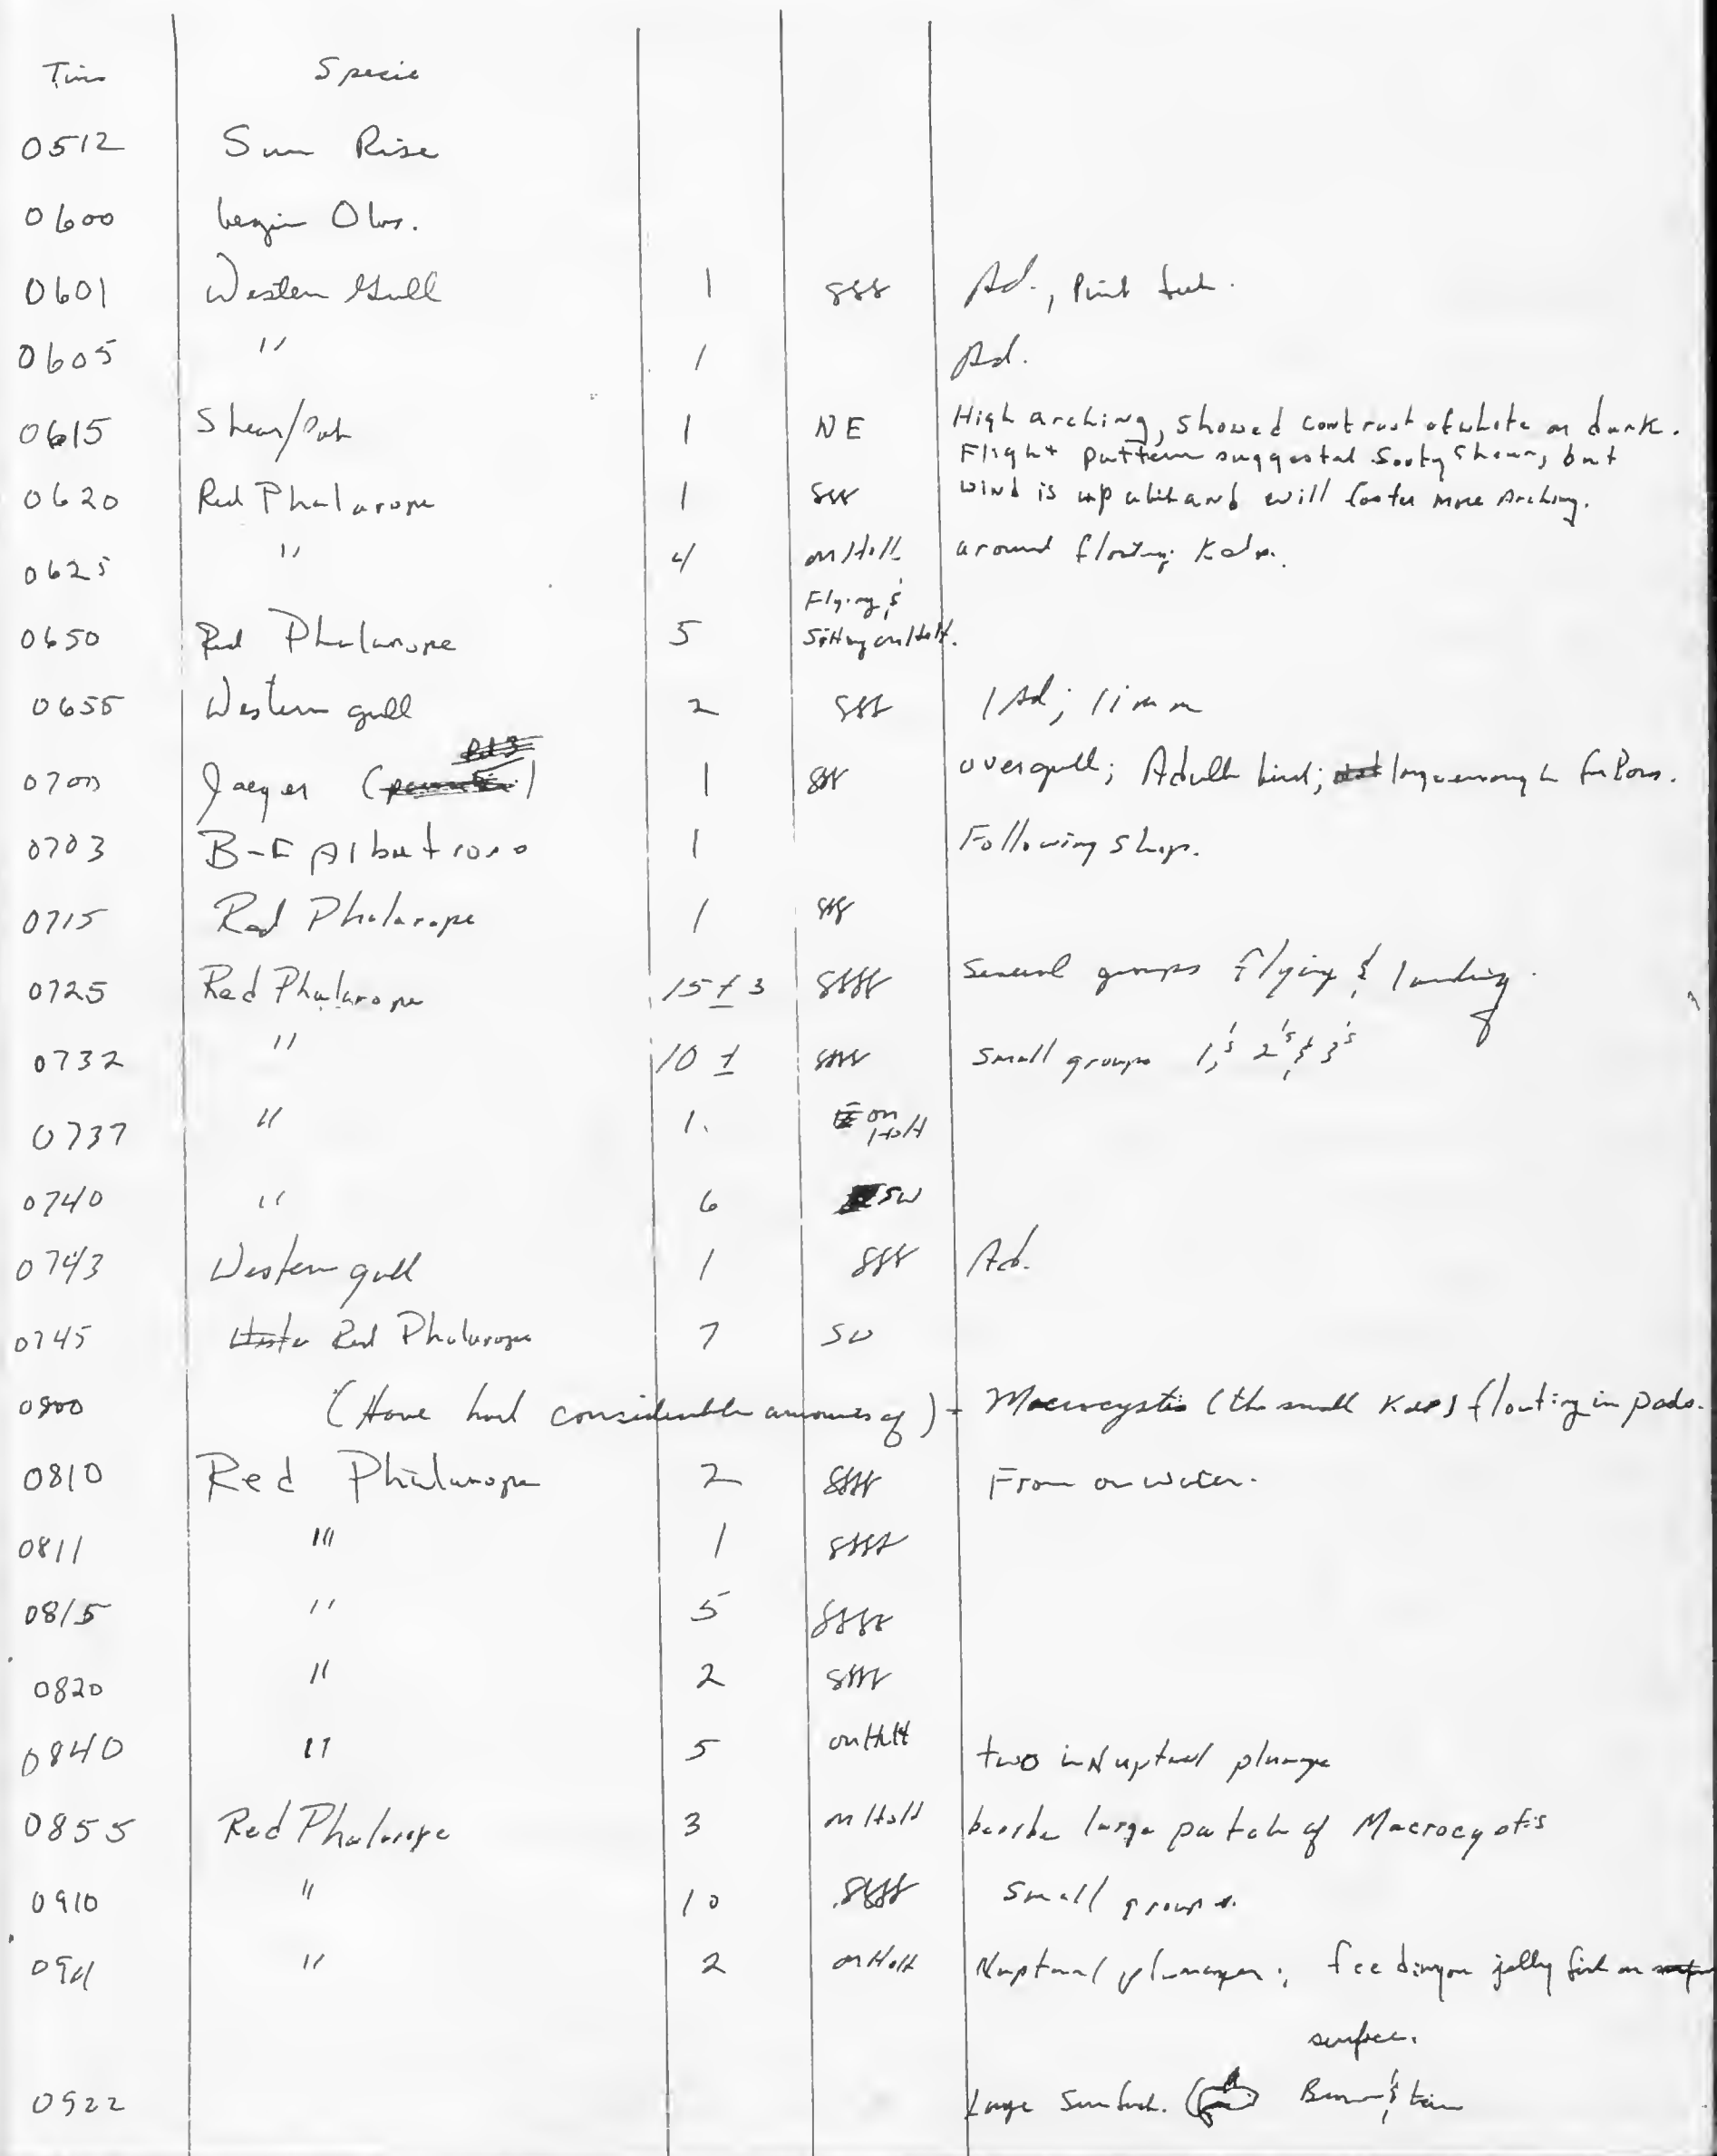 Time Specie
0512 Sun Rise
0600 begin Obs.
0601 Western Gull 1 Ad., Pink feet.
0605 " 1 Ad.
0615 Shear/ 1 NE High arching, showed contrast of white on dark.
Flight pattern suggested Sooty Shear, but
0620 Red Phalarope 1 wind is up a bit and will foster more Arching.
0625 " 4 on H2O around floating Kelp.
Flying &
0650 Red Phalarope 5 Sitting on H2O.
0655 Western gull 2 1 Ad; 1 imm
0700 Jaeger ( ) 1 over gull; Adult bird; large enough for Pom.
0703 B-F Albatross 1 Following ship.
0715 Red Phalarope 1
0725 Red Phalarope 15 ± 3 Several groups flying & landing.
0732 " 10 ± Small groups 1's, 2's & 3's
0737 " 1. on H2O
0740 " 6 SW
0743 Western gull 1 Ad.
0745 Red Phalarope 7 SW
0800 (Have had considerable amounts of) - Macrocystis (the small Kelp) floating in pads.
0810 Red Phalarope 2 From on water.
0811 " 1
0815 " 5
0820 " 2
0840 " 5 on H2O two in Nuptual plumage
0855 Red Phalarope 3 on H2O beside large patch of Macrocystis
0910 " 10 Small groups.
" 2 on H2O Nuptual plumages; feeding on jelly fish on
surface.
0922 Large Sunfish. ( Brown & tan